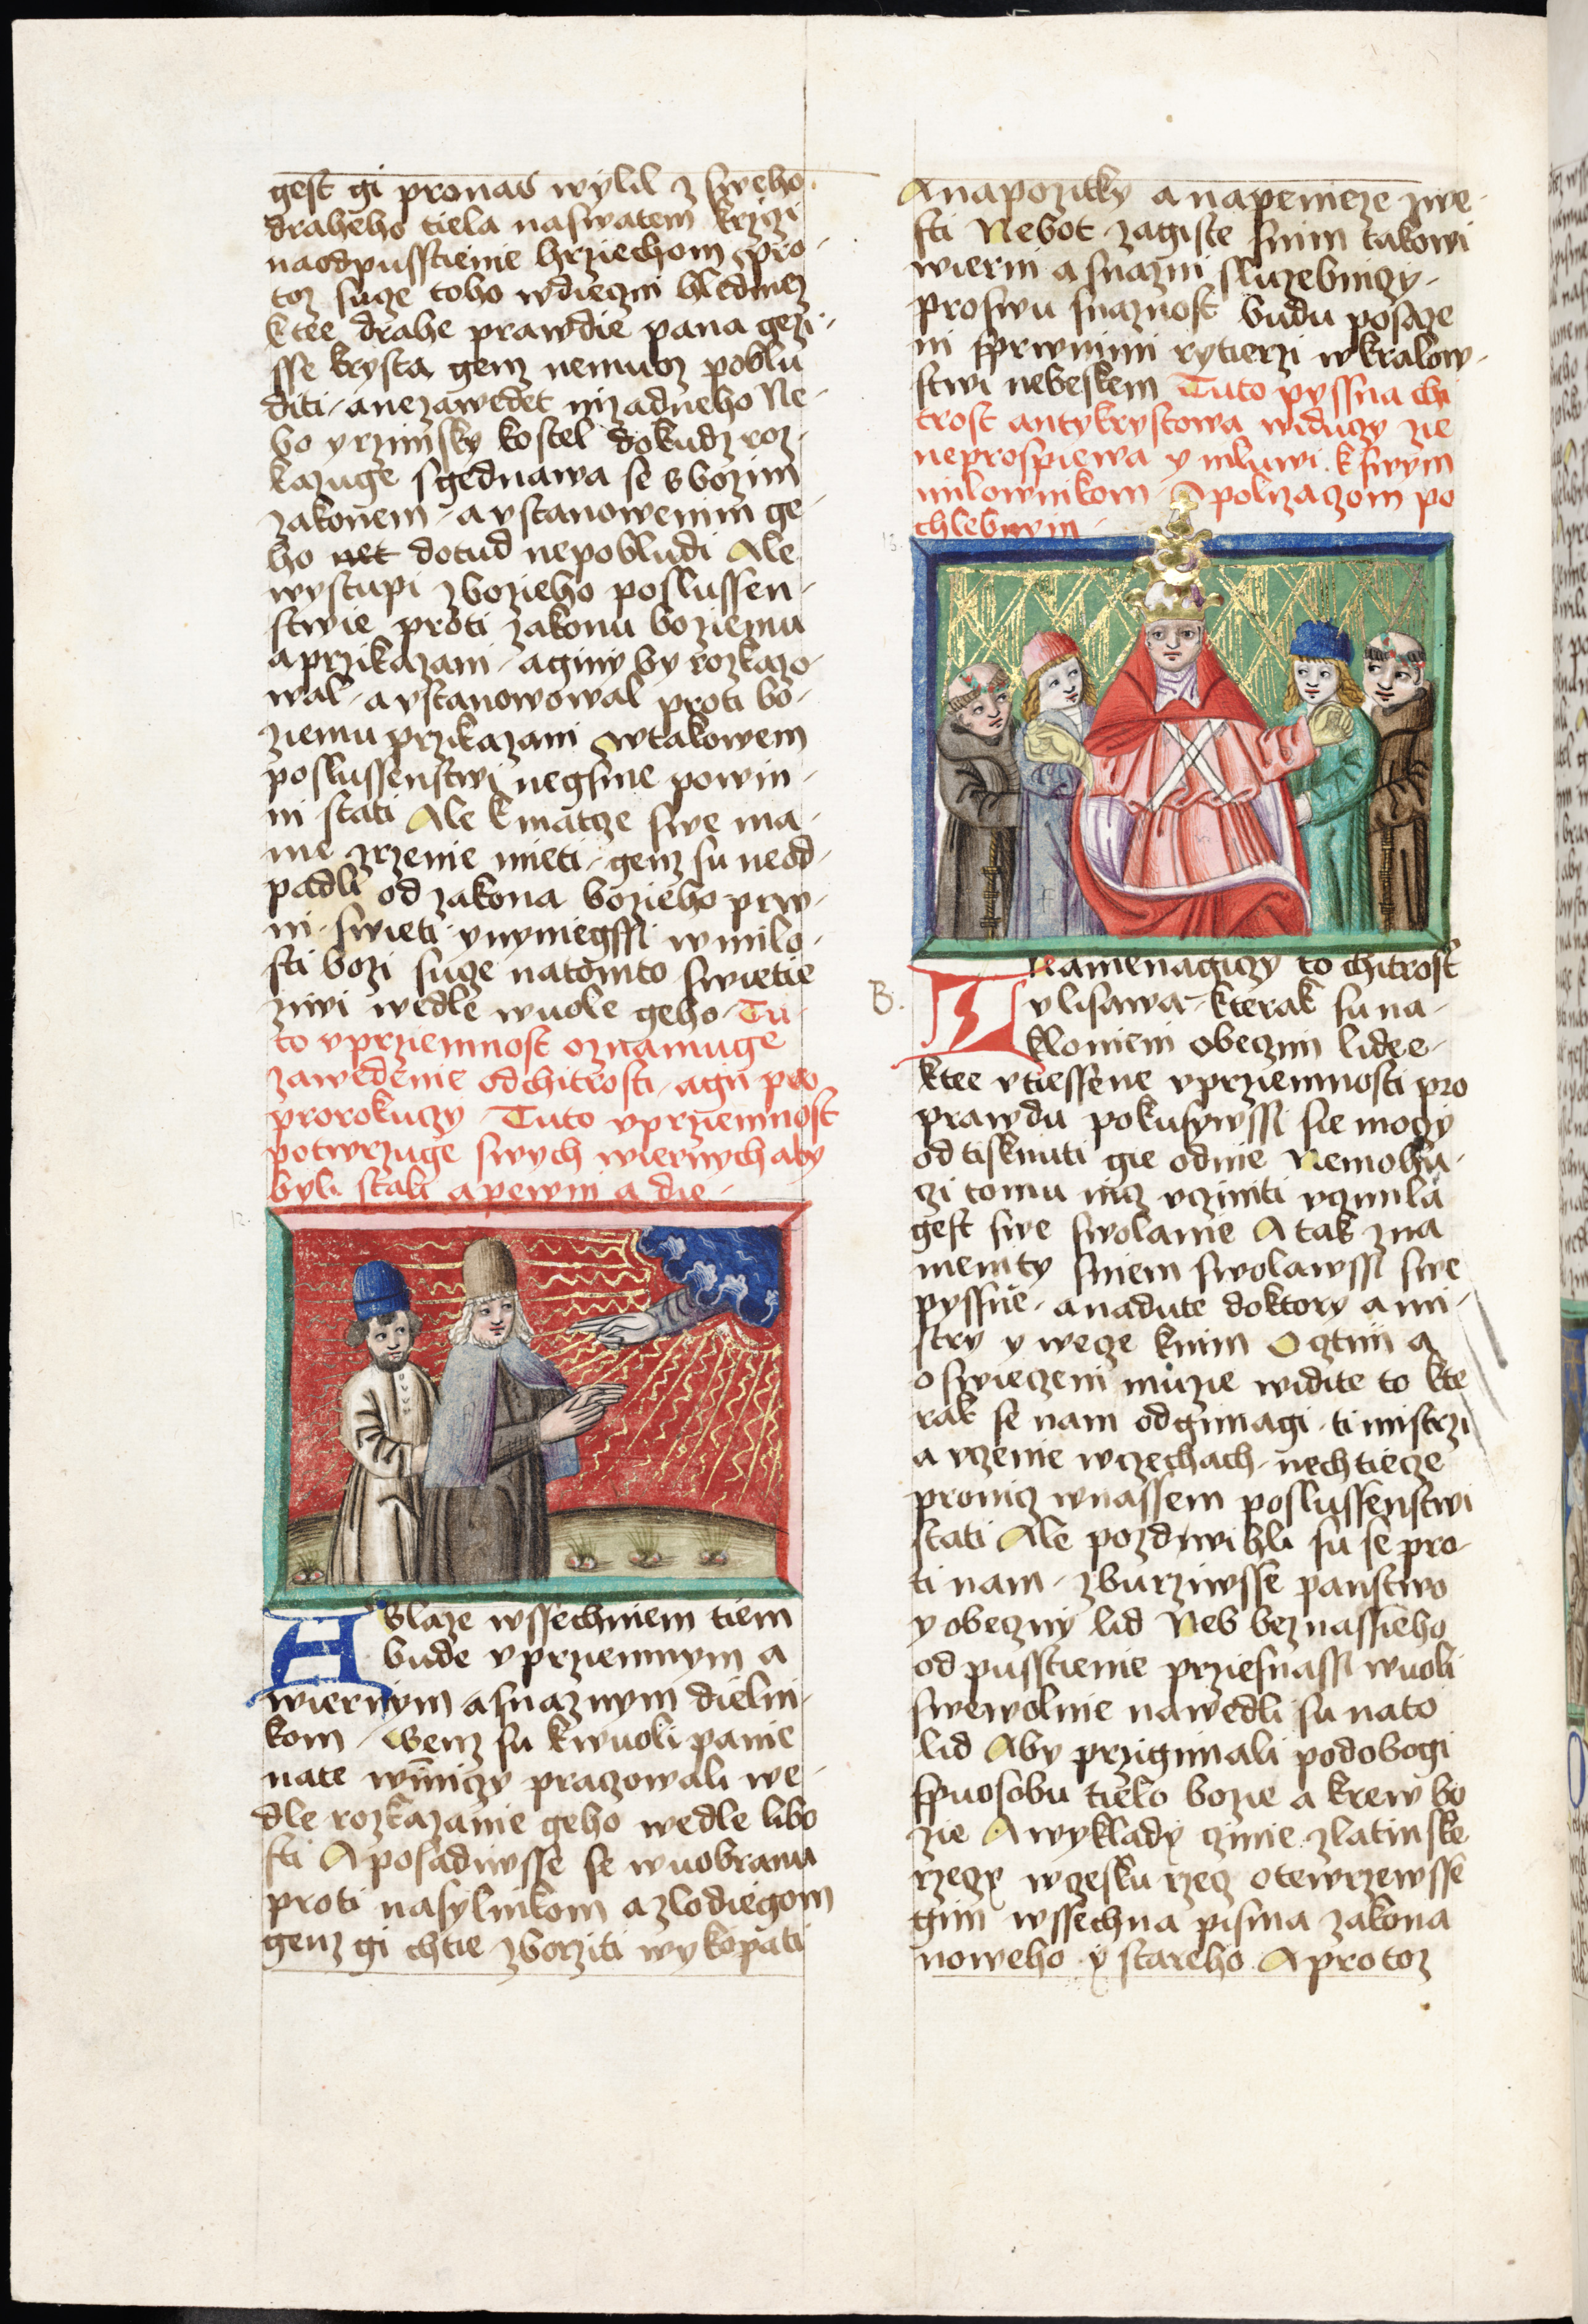 gest gi pronas wylil z sweho
draheho tiela naswatem krzizi
naodpusstienie hrziechom pro-
toz suze toho wdieczni hledmez
ktee drahe prawdie pana gezi-
sse krysta genz nemuoz poblu
diti - anezawedet nizadneho Ne-
bo y rzimsky kostel dokudz roz-
kazuge sgednawa se s bozim
zakonem - a vstanowenim ge-
ho net dotud nepobludi Ale
wystupi z bozieho poslussen-
stwie proti zakonu boziemu
a przikazani - aginy by rozkazo-
wal - a vstanowowal proti bo-
ziemu przikazani wtakowem
poslussenstwi negsme powin-
ni stati Ale kmatcze swe ma-
me zrzenie mieti - genz su neod-
padli od zakona bozieho prw-
ni - swieti ynyniegssi w milo-
sti bozi suze natomto swietie
ziwi wedle wuole geho - Tu-
to vprziemnost oznamuge
zawedenie od chitrosti - agii pro
prorokuczy - Tuto vprziemnost
potwrzuge swych wiernych aby
byli stali a pewni a die -
12.
A Blaze wssechniem tiem
bude vprziemnym a
wiernym asnaznym dielni-
kom - Genz su kwuoli panie
nate winniczy praczowali we-
dle rozkazanie geho wedle libo
sti Aposadiwsse se wuobranu
proti nasylnikom azlodiegom
genz gi chtie zborziti wykopati
Anapozitky a napenieze zwe-
sti Nebot zagiste snim takowi
wierni a snazni sluzebniczy -
proswu snaznost budu posaze
ni sprwnimi rytierzi wkralow-
stwi nebeskem Tuto pyssna chi
trost antykrystowa widuczy zie
neprospiewa y mluwi k swym
milownikom - Apolizaczom po
chlebnym -
13.
B.
Znamenagiczy to chitrost
vlisawa - kterak su na-
klonieni obeczni lidee -
ktee vtiessene vprziemnosti pro
prawdu pokusywssi sie mogy
odtisknuti gie odnie Nemohu-
czi tomu nicz vcziniti vczinila
gest swe swolanie A tak zna
menity sniem swolawssi swe
pyssne - anadute doktory a mi-
stry y wece knim Ogtini a
oswieczeni muzie widite to kte
rak se nam odgimagi - ti mistrzi
a vczenie wczechach - nechtiecze
pronicz wnassem poslussenstwi
stati Ale pozdwihli su se pro-
ti nam - zburziwsse panstwo
y obeczny lid Neb beznassieho
odpusstienie przesnassi wuoli
swewolnie nawedli su nato
lid Aby przigimali podobogi
spuosobu tielo bozie a krew bo
zie Awyklady czinie zlatinske
rzeczy wczesku rzecz otewrzewsse
gim wssechna pisma zakona
noweho y stareho Aprotoz